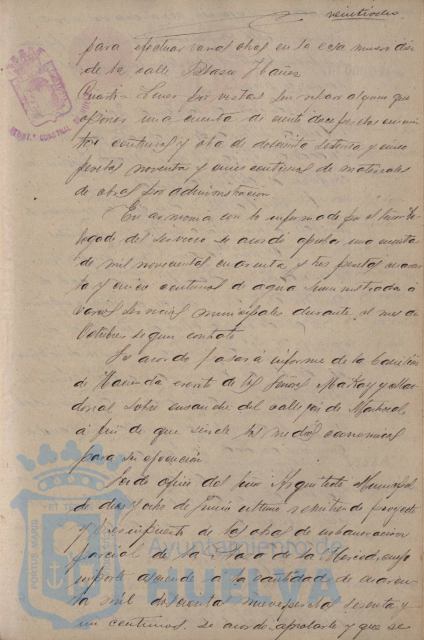 veintidos
para efectuar varias obras en la casa numero diez
de la calle Blasco Ibañez
Cuarto = Leves son vistas sin reparo alguno que
oponer una cuenta de veintidos pesetas cuarenta
céntimos y otra de doscientas setenta y cinco
pesetas noventa y cinco centimos de materiales
de obras por administracion
En armonia con lo informado por el Señor De-
legado del servicio se acordó aprobar una cuenta
de mil novecientas cuarenta y tres pesetas cuaren-
ta y cinco centimos de agua suministrada a
varios servicios municipales durante el mes de
Octubre segun contrato
Se acordo pasar á informe de la Comision
de Hacienda escrito de los Señores Mackay y Mac
donal sobre ensanche del callejon de
á fin de que sirvan los medios economicos
para su ejecucion
Leido oficio del Señor Arquitecto Municipal
de dieciocho de Junio ultimo remitiendo proyecto
y Presupuesto de las obras de urbanizacion
parcial de la Plaza de la Merced, cuyo
importe asciende a la cantidad de cuaren-
ta mil doscientas nueve pesetas sesenta y
un centimos, se acordó aprobarlo y que se
Ayuntamiento de
HUELVA
PORTUS MARIS